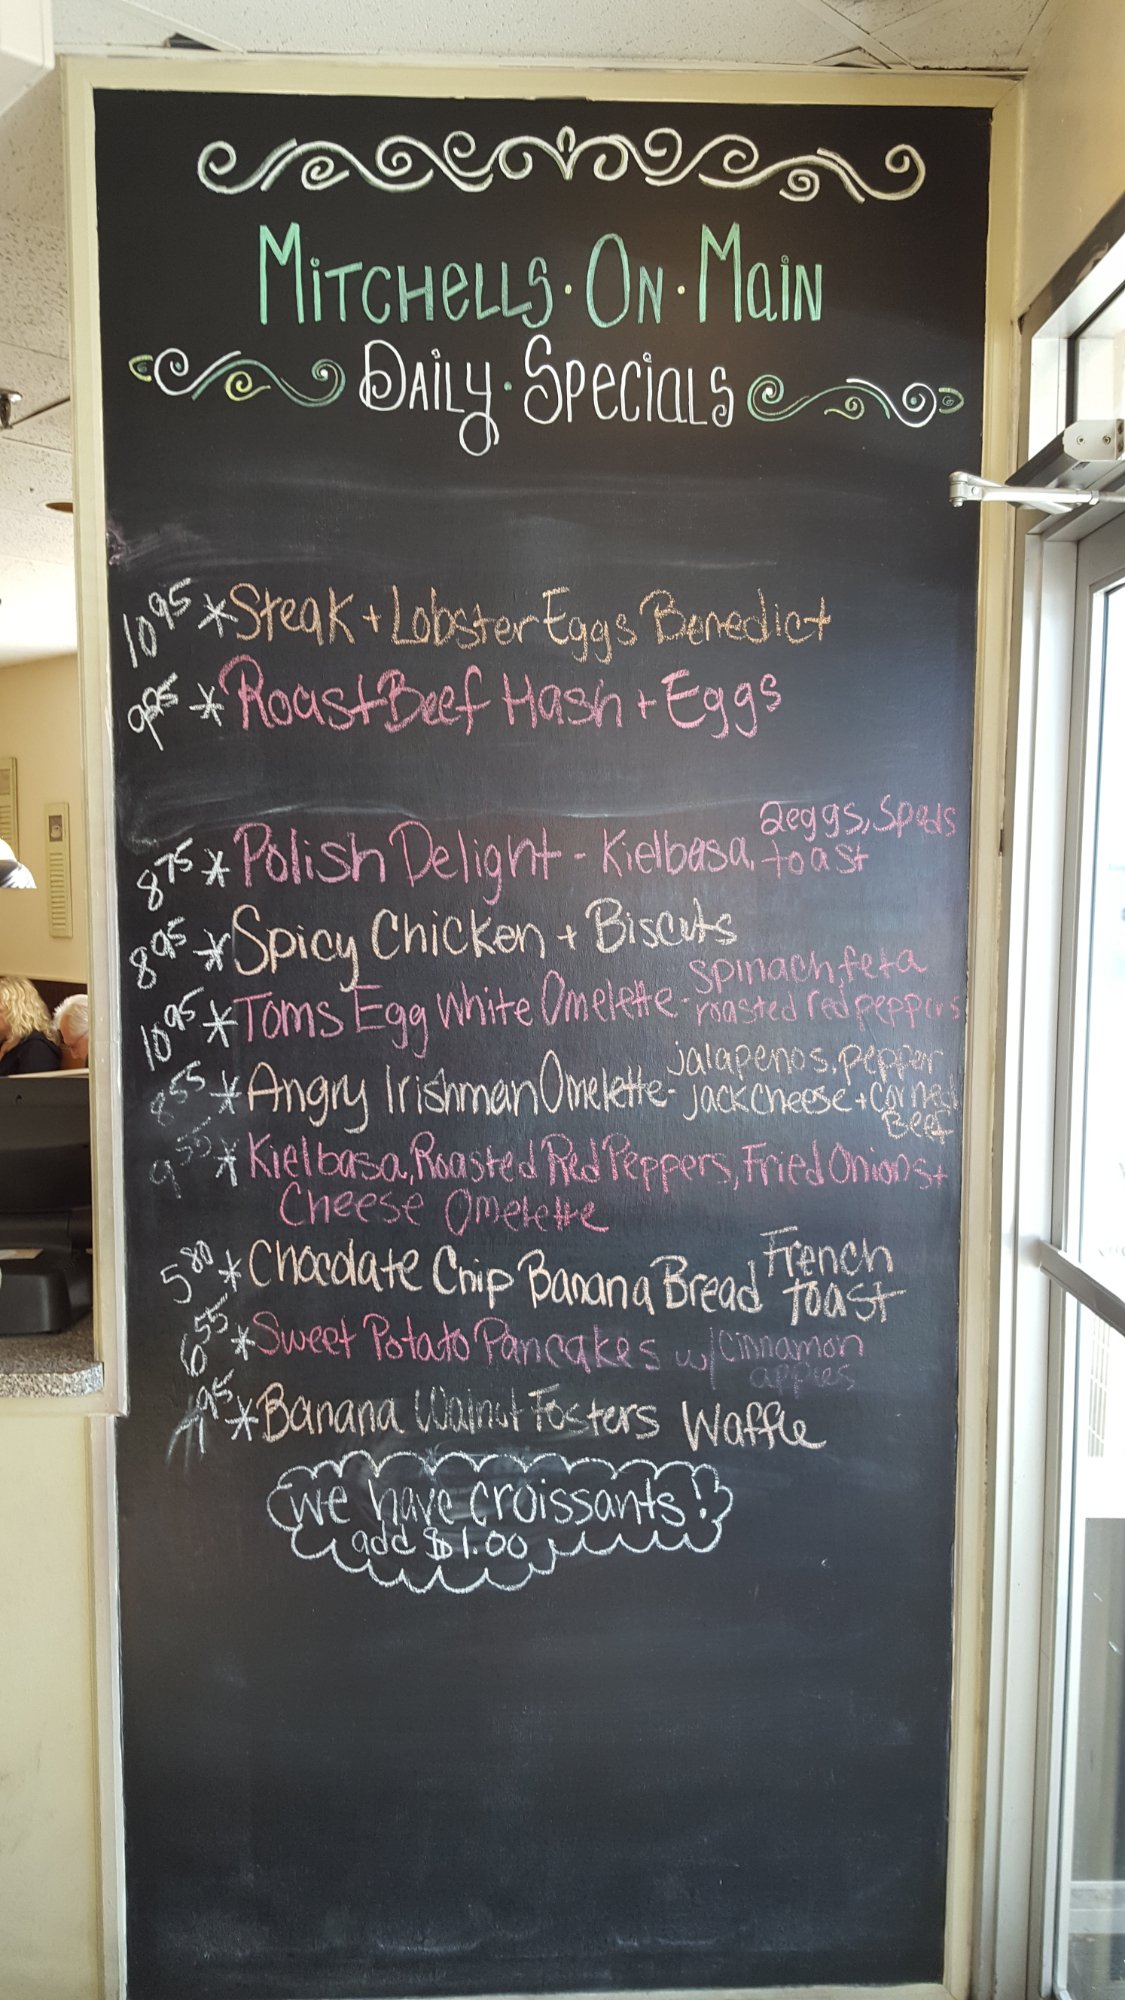 Mitchells · On · Main
Daily · Specials
10.95 * Steak + Lobster Eggs Benedict
9.95 * Roast Beef Hash + Eggs
8.75 * Polish Delight - Kielbasa, 2 eggs, Speds
toast
8.95 * Spicy Chicken + Biscuts
10.95 * Toms Egg White Omelette - spinach, feta
roasted red peppers
8.55 * Angry Irishman Omelette - jalapenos, pepper
jack cheese + corned
Beef
9.55 * Kielbasa, Roasted Red Peppers, Fried Onions +
Cheese Omelette
5.80 * Chocolate Chip Banana Bread French
toast
6.55 * Sweet Potato Pancakes w/ cinnamon
apples
.95 * Banana Walnut Fosters Waffle
we have croissants!
add $1.00